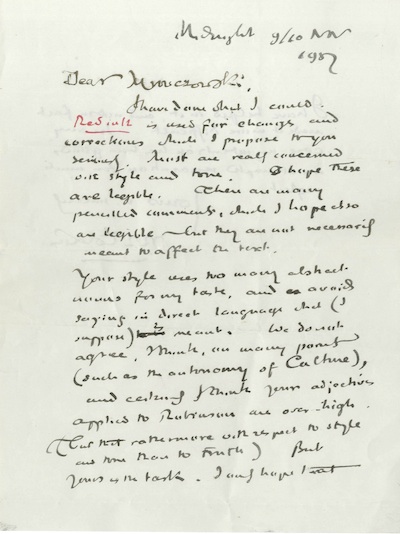 Midnight 9/10 Nov
1987
Dear Mroczowski,
I have done what I could.
Red ink is used for changes and
corrections which I propose to you
seriously. Most are really concerned
with style and tone. I hope these
are legible. There are many
pencilled comments, which I hope also
are legible – but they are not necessarily
meant to affect the text.
Your style uses too many abstract
nouns for my taste, and avoids
saying in direct language what (I
suppose) is meant. We do not
agree, I think, on many points
(such as the autonomy of Culture),
and certainly I think your adjectives
applied to Robinson are over-high.
(but rather more with respect to style
and tone than to truth) But
yours is the task. I only hope that